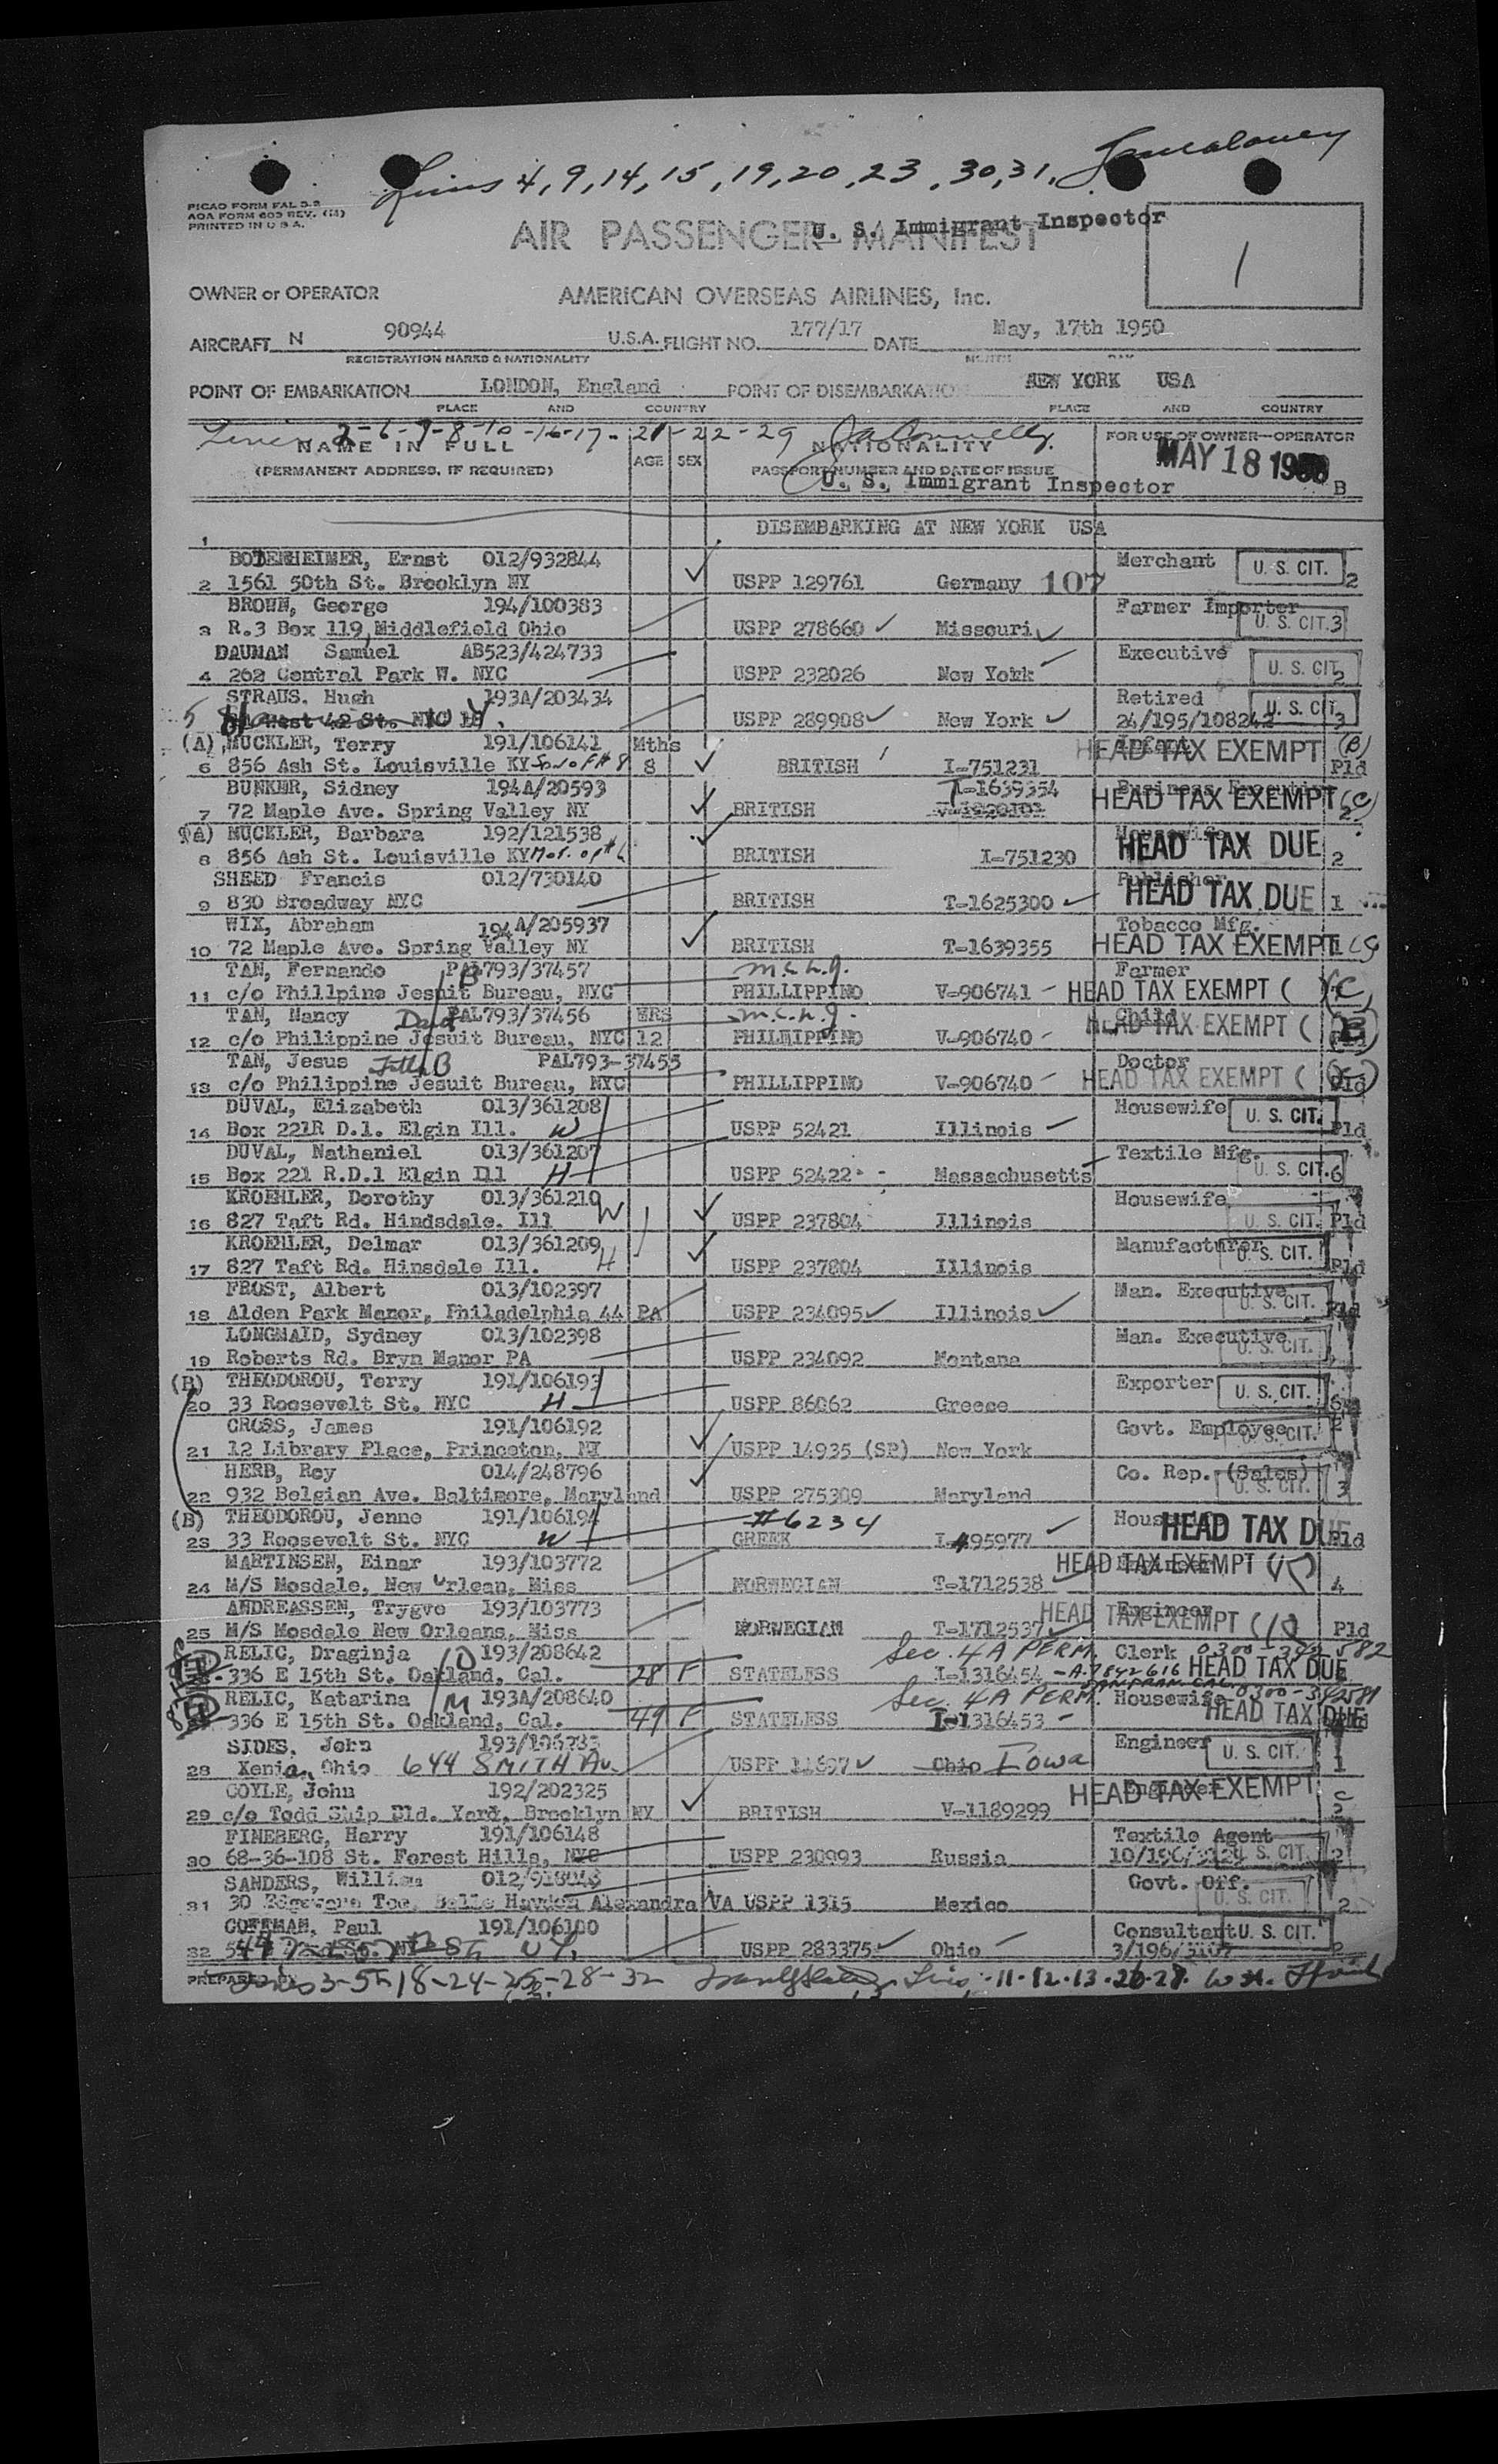 Lines 4, 9, 14, 15, 19, 20, 23, 30, 31.
PICAO FORM FAL
AOA FORM 603 REV.
PRINTED IN U S A.
AIR PASSENGER MANIFEST
U. S. Immigrant Inspector
1
OWNER or OPERATOR AMERICAN OVERSEAS AIRLINES, Inc.
AIRCRAFT N 90944 U.S.A. FLIGHT NO. 177/17 DATE May, 17th 1950
REGISTRATION MARKS & NATIONALITY MONTH DAY
POINT OF EMBARKATION LONDON, England POINT OF DISEMBARKATION NEW YORK USA
PLACE AND COUNTRY PLACE AND COUNTRY
Lines 2-6-7-8-10-16-17-21-22-29
NAME IN FULL AGE SEX NATIONALITY FOR USE OF OWNER—OPERATOR
(PERMANENT ADDRESS, IF REQUIRED) PASSPORT NUMBER AND DATE OF ISSUE MAY 18 1950
U. S. Immigrant Inspector B
DISEMBARKING AT NEW YORK USA
1
BODENHEIMER, Ernst 012/932844 Merchant U. S. CIT.
2 1561 50th St. Brooklyn NY USPP 129761 Germany 107 2
BROWN, George 194/100383 Farmer Importer
3 R.3 Box 119, Middlefield Ohio USPP 278660 Missouri U. S. CIT. 3
DAUMAN Samuel AB523/424733 Executive
4 262 Central Park W. NYC USPP 232026 New York U. S. CIT. 2
STRAUS, Hugh 193A/203434 Retired U. S. CIT.
5 West 42 St. NYC 18. USPP 289908 New York 24/195/108242 3
(A) MUCKLER, Terry 191/106141 Mths HEAD TAX EXEMPT (B)
6 856 Ash St. Louisville KY Son of # 8 8 BRITISH I-751231 Pld
BUNKER, Sidney 194A/20593 T-1639354 Business Executive
7 72 Maple Ave. Spring Valley NY BRITISH HEAD TAX EXEMPT (C)
(A) MUCKLER, Barbara 192/121538 Housewife
8 856 Ash St. Louisville KY Mot. of #6 BRITISH I-751230 HEAD TAX DUE 2
SHEED Francis 012/730140 Publisher
9 830 Broadway NYC BRITISH T-1625300 HEAD TAX DUE 1
WIX, Abraham 194A/205937 Tobacco Mfg.
10 72 Maple Ave. Spring Valley NY BRITISH T-1639355 HEAD TAX EXEMPT
TAN, Fernando PAL793/37457 Farmer
11 c/o Phillpine Jesuit Bureau, NYC B PHILLIPPINO V-906741 HEAD TAX EXEMPT (C)
TAN, Nancy PAL793/37456 YRS Child
12 c/o Philippine Jesuit Bureau, NYC 12 PHILLIPPINO V-906740 HEAD TAX EXEMPT
TAN, Jesus PAL793-37455 Doctor
13 c/o Philippine Jesuit Bureau, NYC PHILLIPPINO V-906740 HEAD TAX EXEMPT Pld
DUVAL, Elizabeth 013/361208 Housewife U. S. CIT.
14 Box 221R D.1. Elgin Ill. W USPP 52421 Illinois Pld
DUVAL, Nathaniel 013/361207 Textile Mfg.
15 Box 221 R.D.1 Elgin Ill H USPP 52422 Massachusetts U. S. CIT. 6
KROEHLER, Dorothy 013/361210 W Housewife
16 827 Taft Rd. Hindsdale. Ill USPP 237804 Illinois U. S. CIT. Pld
KROEHLER, Delmar 013/361209 Manufacturer U. S. CIT.
17 827 Taft Rd. Hinsdale Ill. H USPP 237804 Illinois Pld
FROST, Albert 013/102397 Man. Executive
18 Alden Park Manor, Philadelphia 44 PA USPP 234095 Illinois U. S. CIT. Pld
LONGMAID, Sydney 013/102398 Man. Executive
19 Roberts Rd. Bryn Manor PA USPP 234092 Montana U. S. CIT.
(B) THEODOROU, Terry 191/106193 Exporter U. S. CIT.
20 33 Roosevelt St. NYC H USPP 86062 Greece
CROSS, James 191/106192 Govt. Employee U. S. CIT.
21 12 Library Place, Princeton, NJ USPP 14935 (SP) New York
HERB, Roy 014/248796 Co. Rep. (Sales)
22 932 Belgian Ave. Baltimore, Maryland USPP 275309 Maryland U. S. CIT. 3
(B) THEODOROU, Jenne 191/106194 #6234
23 33 Roosevelt St. NYC W GREEK I-495977 HEAD TAX DUE Pld
MARTINSEN, Einar 193/103772 HEAD TAX EXEMPT
24 M/S Mosdale, New Orlean, Miss NORWEGIAN T-1712538 4
ANDREASSEN, Trygve 193/103773 Engineer
25 M/S Mosdale New Orleans, Miss NORWEGIAN T-1712537 HEAD TAX EXEMPT Pld
RELIC, Draginja D 193/208642 Sec. 4A PERM. Clerk 0300-342582
336 E 15th St. Oakland, Cal. 28 F STATELESS I-1316454 -A-7842616 HEAD TAX DUE
RELIC, Katarina M 193A/208640 Sec. 4A PERM. Housewife 0300-342581
336 E 15th St. Oakland, Cal. 49 F STATELESS I-1316453 HEAD TAX DUE
SIDES, John Engineer U. S. CIT.
28 Xenia, Ohio 644 SMITH Av. Ohio Iowa 1
COYLE, John 192/202325 Engineer
29 c/o Todd Ship Bld. Yard, Brooklyn NY BRITISH V-1189299 HEAD TAX EXEMPT C
FINEBERG, Harry 191/106148 Textile Agent
30 68-36-108 St. Forest Hills, NYC USPP 230993 Russia U. S. CIT. 2
SANDERS, William Govt. Off.
31 30 Belle Hayden Alexandra VA USPP 1315 Mexico U. S. CIT. 2
COFFMAN, Paul 191/106100 Consultant U. S. CIT.
32 USPP 283375 Ohio
PREPARED BY Lines 3-5-18-24-25-28-32 Lines 11-12-13-26-27